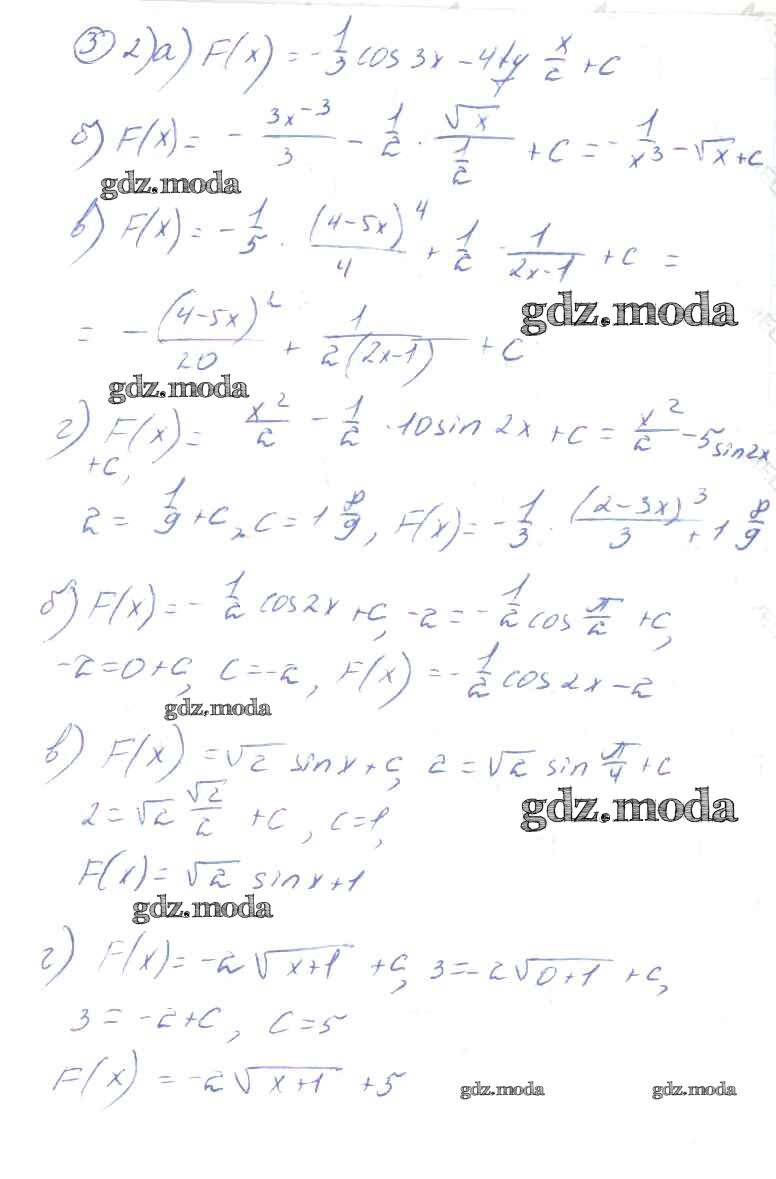 ③ 2)а) F(x) = -1/3 cos 3x - 4tg x/2 + C
б) F(x) = - 3x^-3/3 - 1/2 · √x/(1/2) + C = - 1/x^3 - √x + C
gdz.moda
в) F(x) = - 1/5 · (4-5x)^4/4 + 1/2 · 1/(2x-1) + C =
gdz.moda
= - (4-5x)^2/20 + 1/(2(2x-1)) + C
gdz.moda
г) F(x) = x^2/2 - 1/2 · 10sin 2x + C = x^2/2 - 5sin2x
+C,
2 = 1/9 + C, C = 1 8/9, F(x) = - 1/3 · (2-3x)^3/3 + 1 8/9
б) F(x) = - 1/2 cos2x + C, -2 = - 1/2 cos π/2 + C,
-2 = 0 + C, C = -2, F(x) = - 1/2 cos 2x - 2
gdz.moda
в) F(x) = √2 sinx + C, 2 = √2 sin π/4 + C
2 = √2 √2/2 + C, C = 1,
gdz.moda
F(x) = √2 sinx + 1
gdz.moda
г) F(x) = -2√(x+1) + C, 3 = -2√(0+1) + C,
3 = -2 + C, C = 5
F(x) = -2√(x+1) + 5
gdz.moda gdz.moda